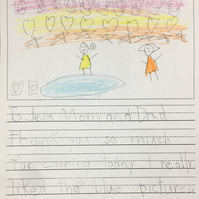 To des Mom and Dad
Thank you so much
for coming today I really
liked the blue pictures